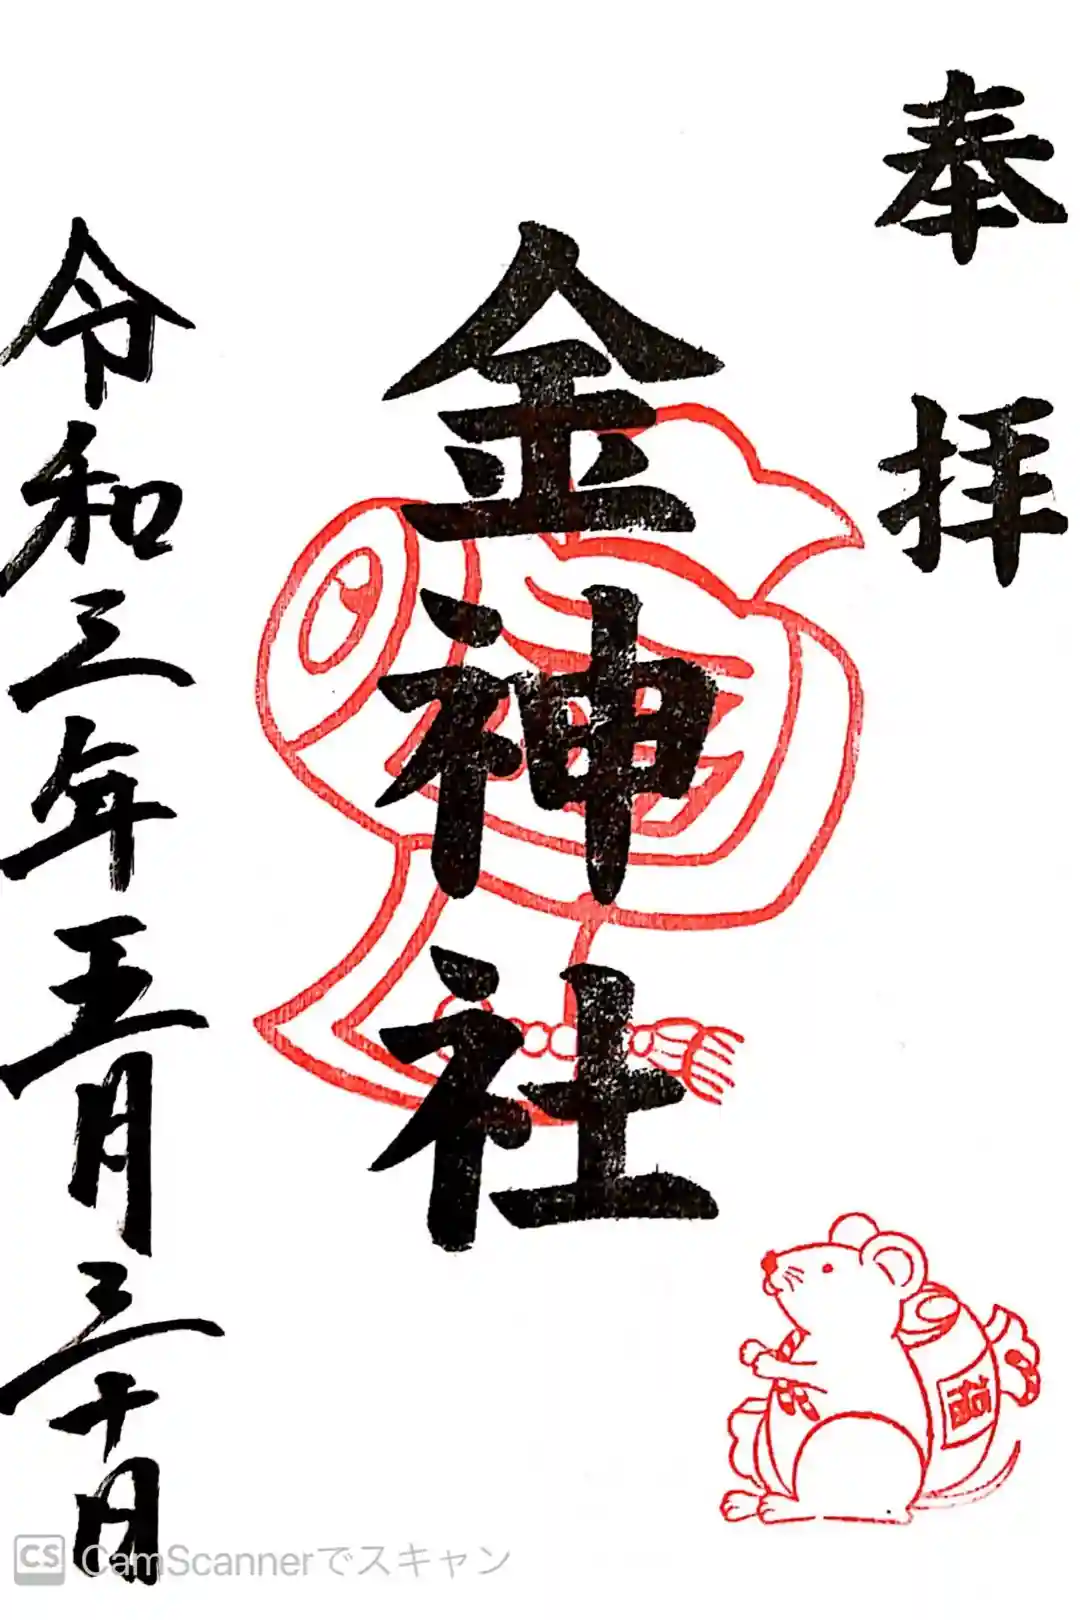 奉拝
金神社
令和三年五月三十日
福
CS CamScannerでスキャン